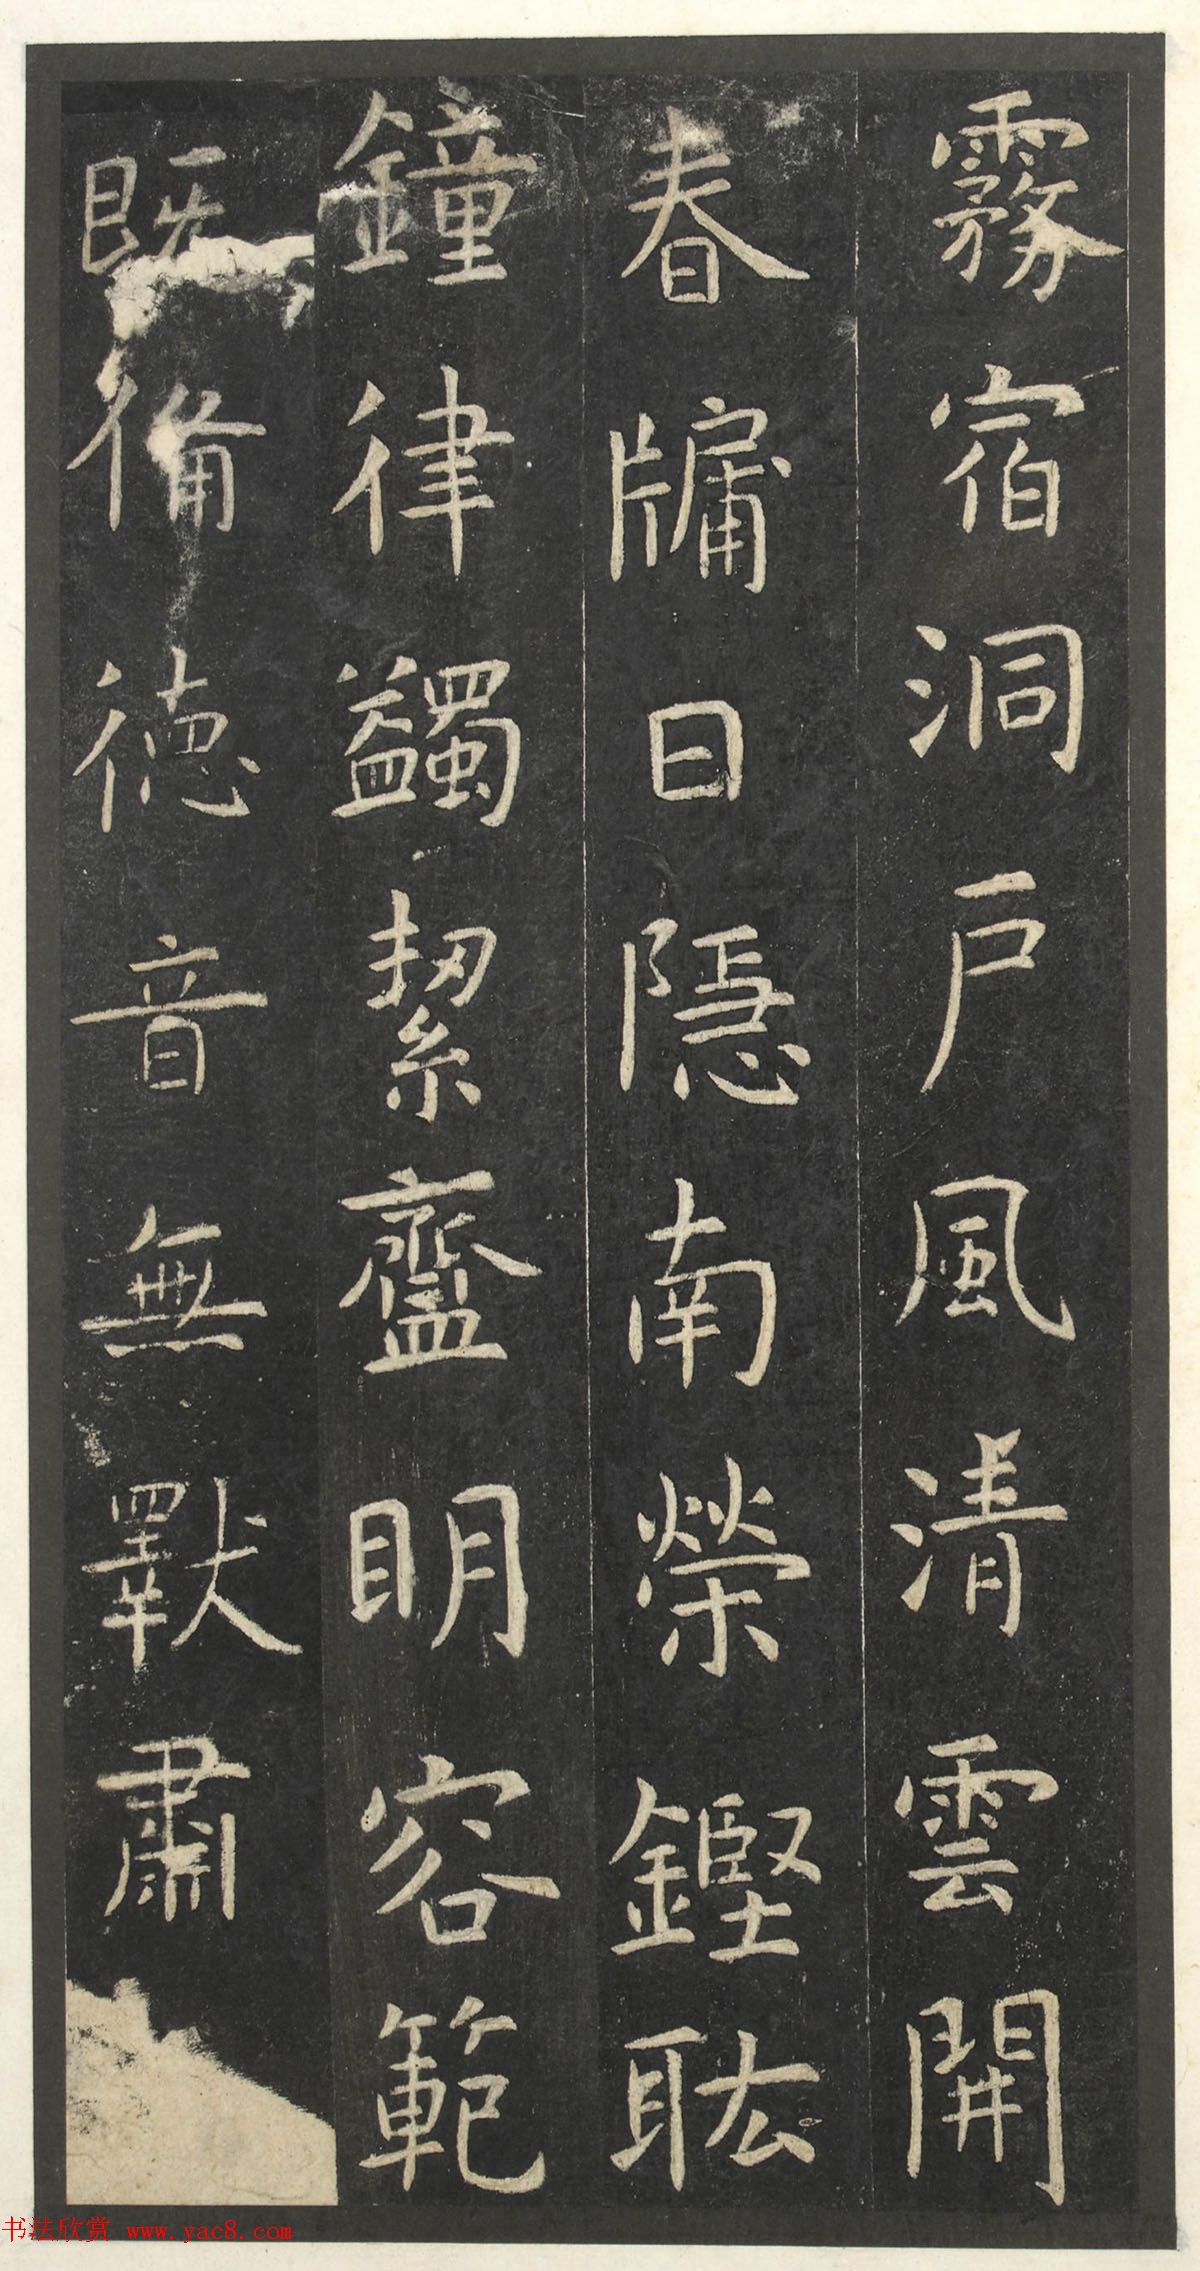 霧宿洞戶風清雲開
春牗日隱南榮鏗耾
鐘律蠲絜齍明容範
既備德音無斁肅
书法欣赏 www.yac8.com